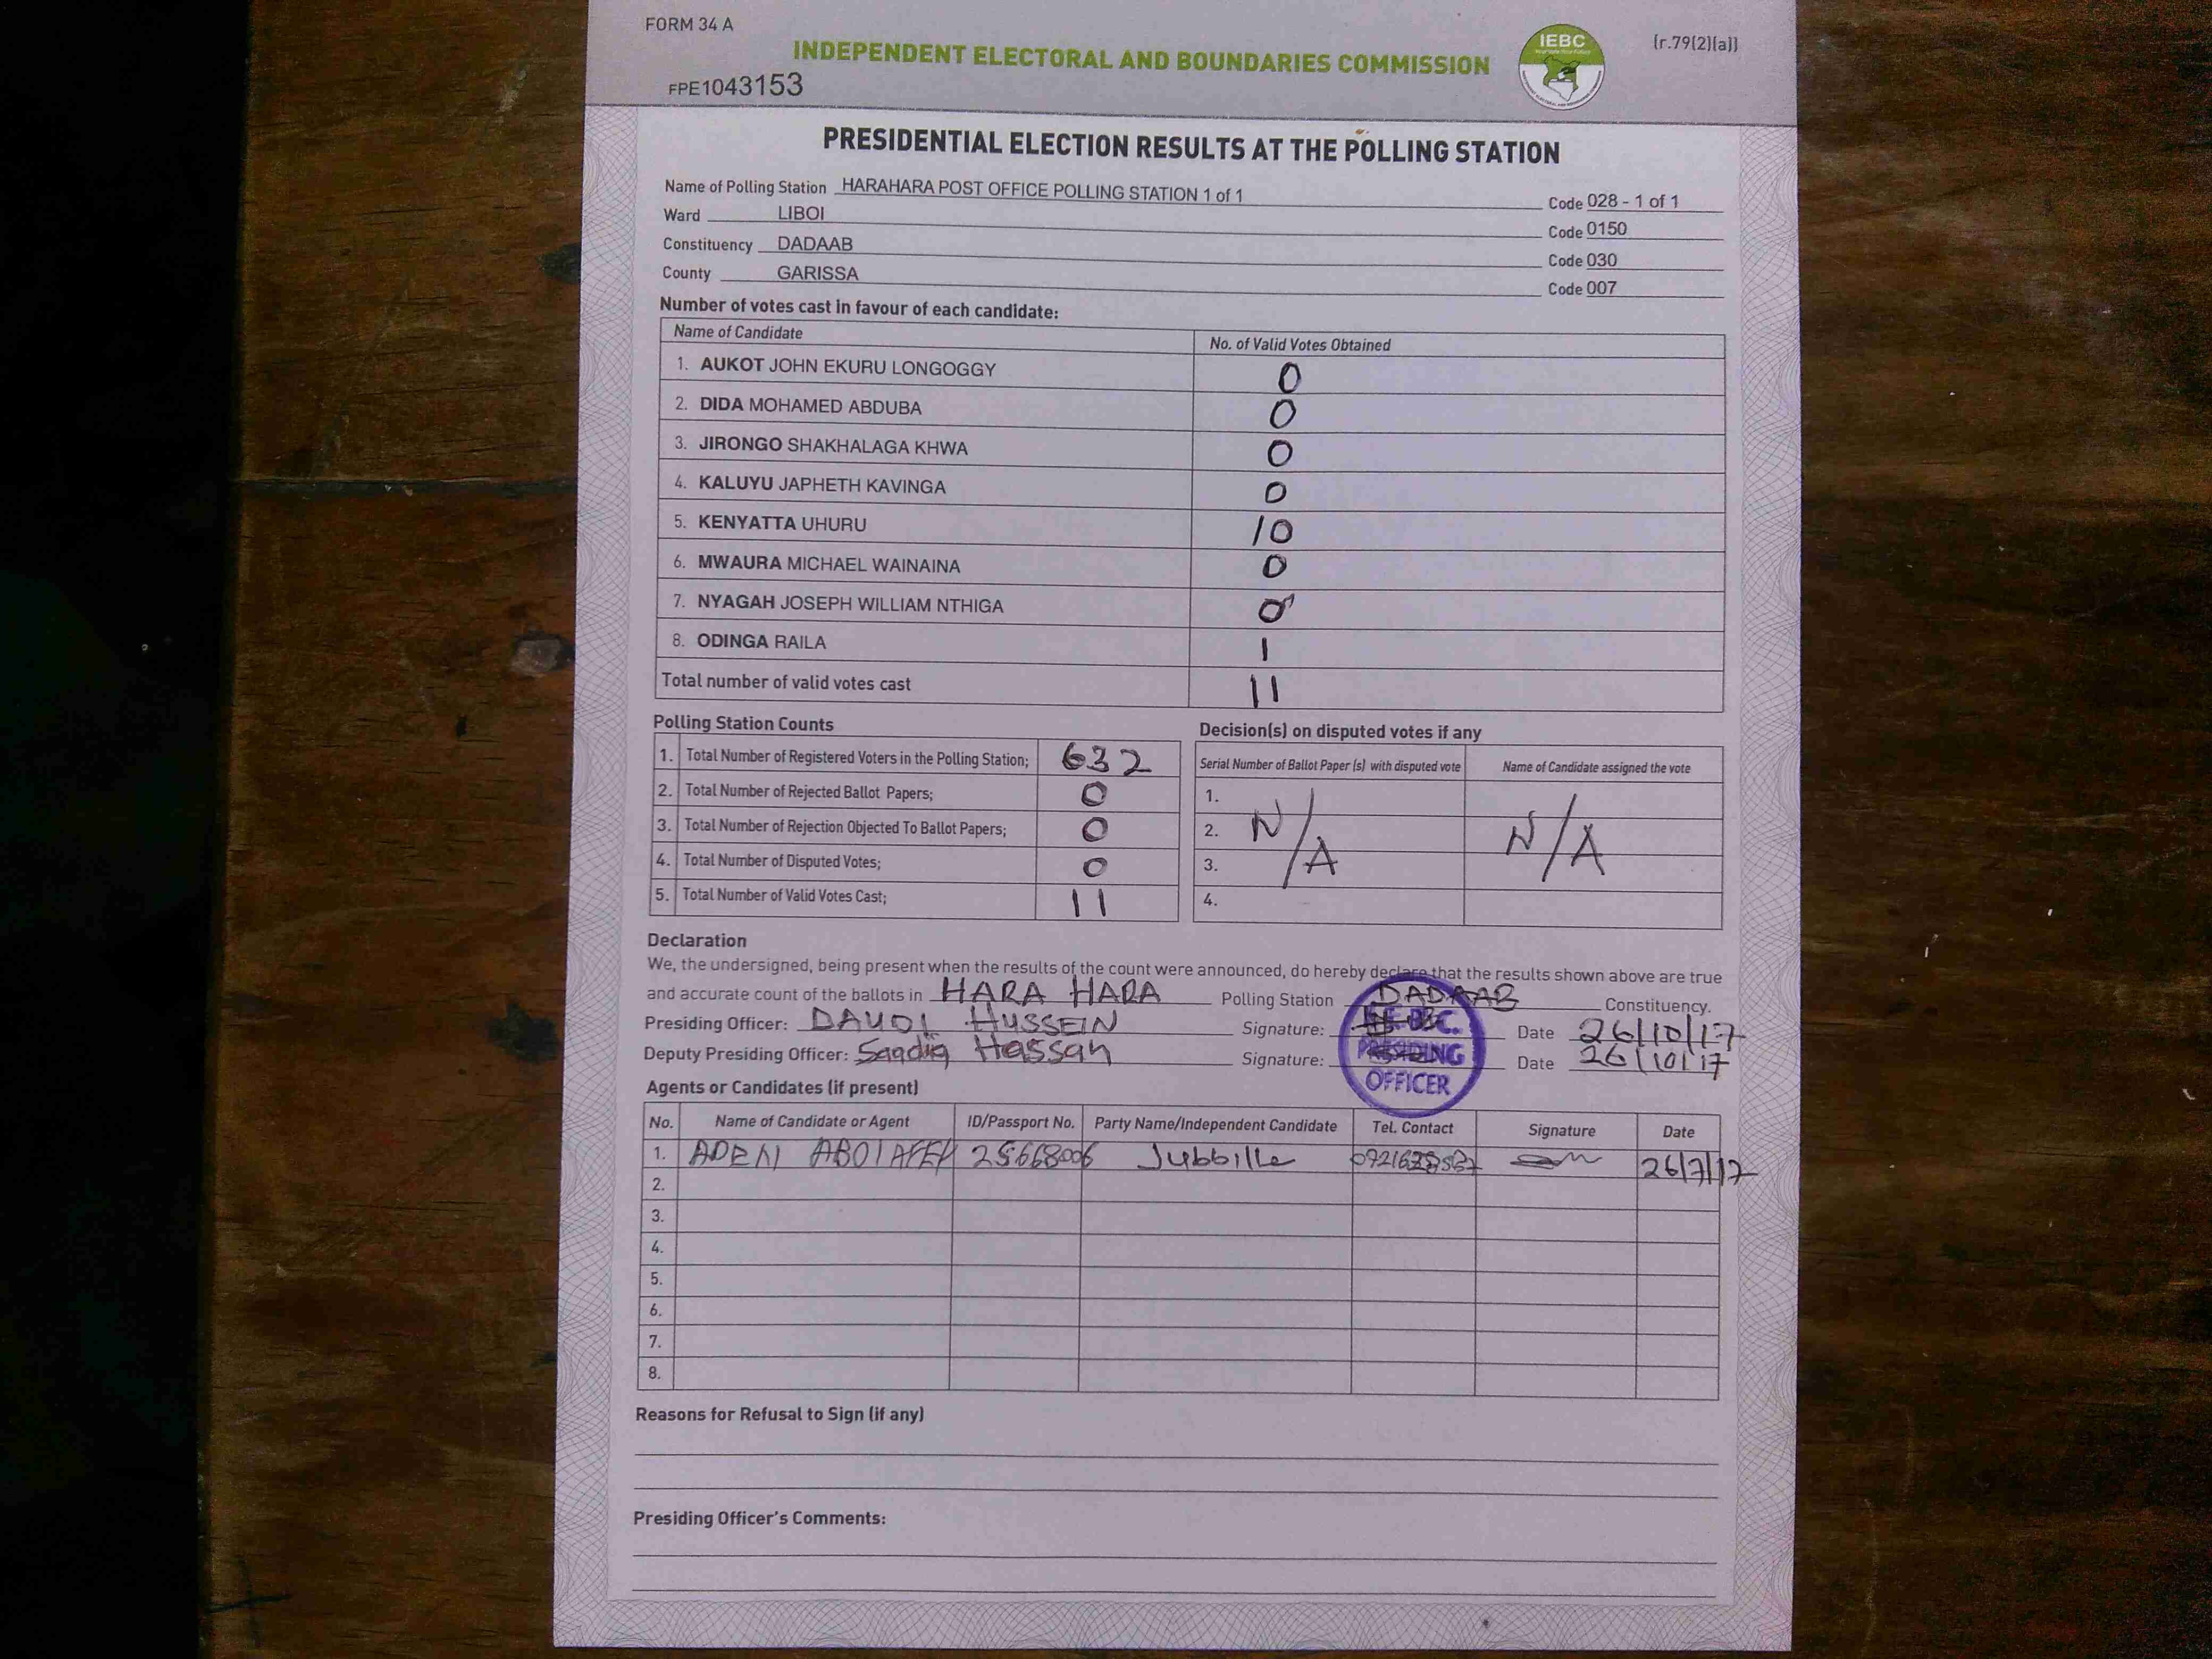 FORM 34 A
INDEPENDENT ELECTORAL AND BOUNDARIES COMMISSION
IEBC
(r.79(2)(a))
FPE1043153
PRESIDENTIAL ELECTION RESULTS AT THE POLLING STATION
Name of Polling Station HARAHARA POST OFFICE POLLING STATION 1 of 1 Code 028 - 1 of 1
Ward LIBOI Code 0150
Constituency DADAAB Code 030
County GARISSA Code 007
Number of votes cast in favour of each candidate:
Name of Candidate No. of Valid Votes Obtained
1. AUKOT JOHN EKURU LONGOGGY 0
2. DIDA MOHAMED ABDUBA 0
3. JIRONGO SHAKHALAGA KHWA 0
4. KALUYU JAPHETH KAVINGA 0
5. KENYATTA UHURU 10
6. MWAURA MICHAEL WAINAINA 0
7. NYAGAH JOSEPH WILLIAM NTHIGA 0
8. ODINGA RAILA 1
Total number of valid votes cast 11
Polling Station Counts
1. Total Number of Registered Voters in the Polling Station; 632
2. Total Number of Rejected Ballot Papers; 0
3. Total Number of Rejection Objected To Ballot Papers; 0
4. Total Number of Disputed Votes; 0
5. Total Number of Valid Votes Cast; 11
Decision(s) on disputed votes if any
Serial Number of Ballot Paper (s) with disputed vote Name of Candidate assigned the vote
1.
2. N/A N/A
3.
4.
Declaration
We, the undersigned, being present when the results of the count were announced, do hereby declare that the results shown above are true
and accurate count of the ballots in HARA HARA Polling Station DADAAB Constituency.
Presiding Officer: DAUDI HUSSEIN Signature: Date 26/10/17
Deputy Presiding Officer: Saadia Hassan Signature: Date 26/10/17
PRESIDING
OFFICER
Agents or Candidates (if present)
No. Name of Candidate or Agent ID/Passport No. Party Name/Independent Candidate Tel. Contact Signature Date
1. ADEN 25668006 Jubbille 26/7/17
2.
3.
4.
5.
6.
7.
8.
Reasons for Refusal to Sign (if any)
Presiding Officer's Comments: